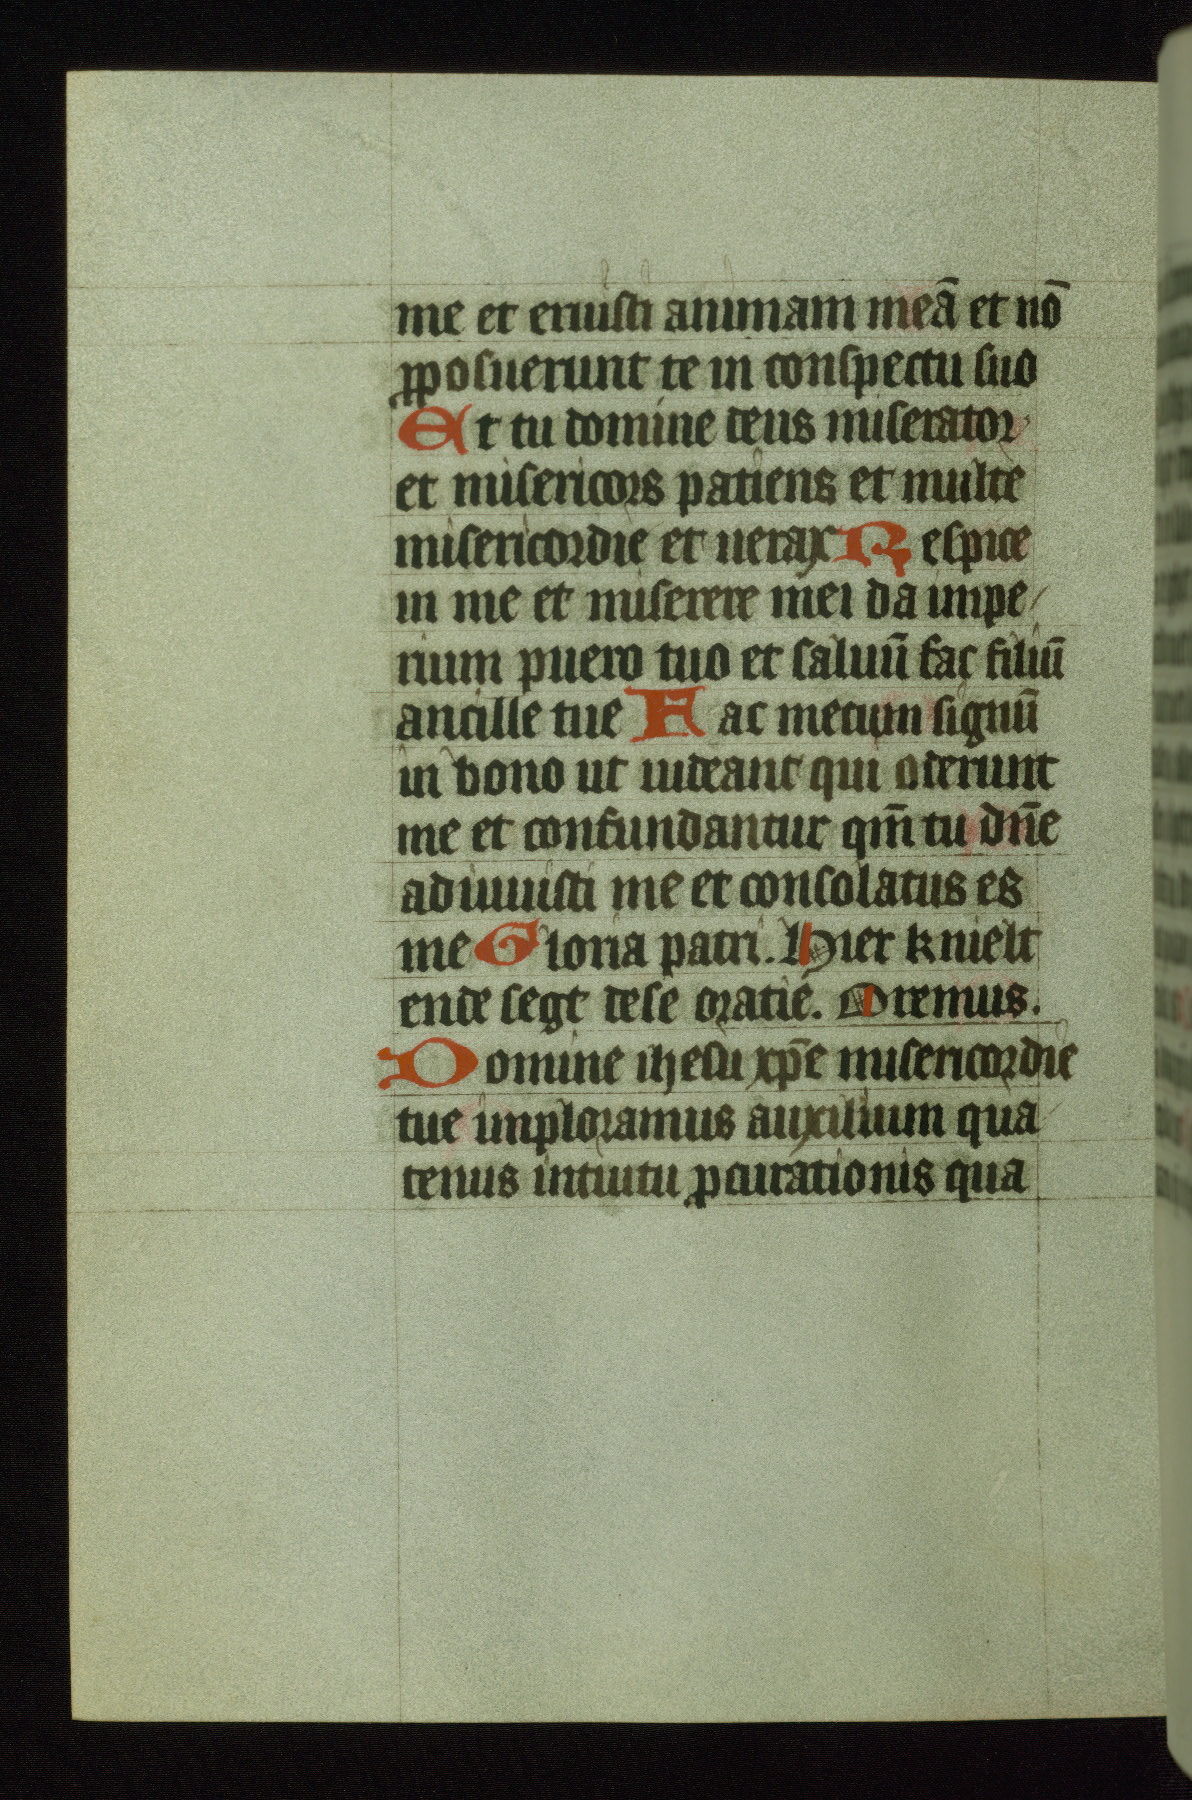 me et eruisti animam meā et nō
ꝓposuerunt te in conspectu suo
Et tu domine deus miserator
et misericors patiens et multe
misericordie et uerax Respice
in me et miserere mei da impe/
rium puero tuo et saluū fac filiū
ancille tue Fac mecum signū
in bono ut uideant qui oderunt
me et confundantur qm̄ tu dn̄e
adiuuisti me et consolatus es
me Gloria patri. Hier knielt
ende segt dese oratie. Oremus.
Domine ihesu xp̄e misericordie
tue imploramus auxilium qua
tenus intuitu ꝓcurationis qua